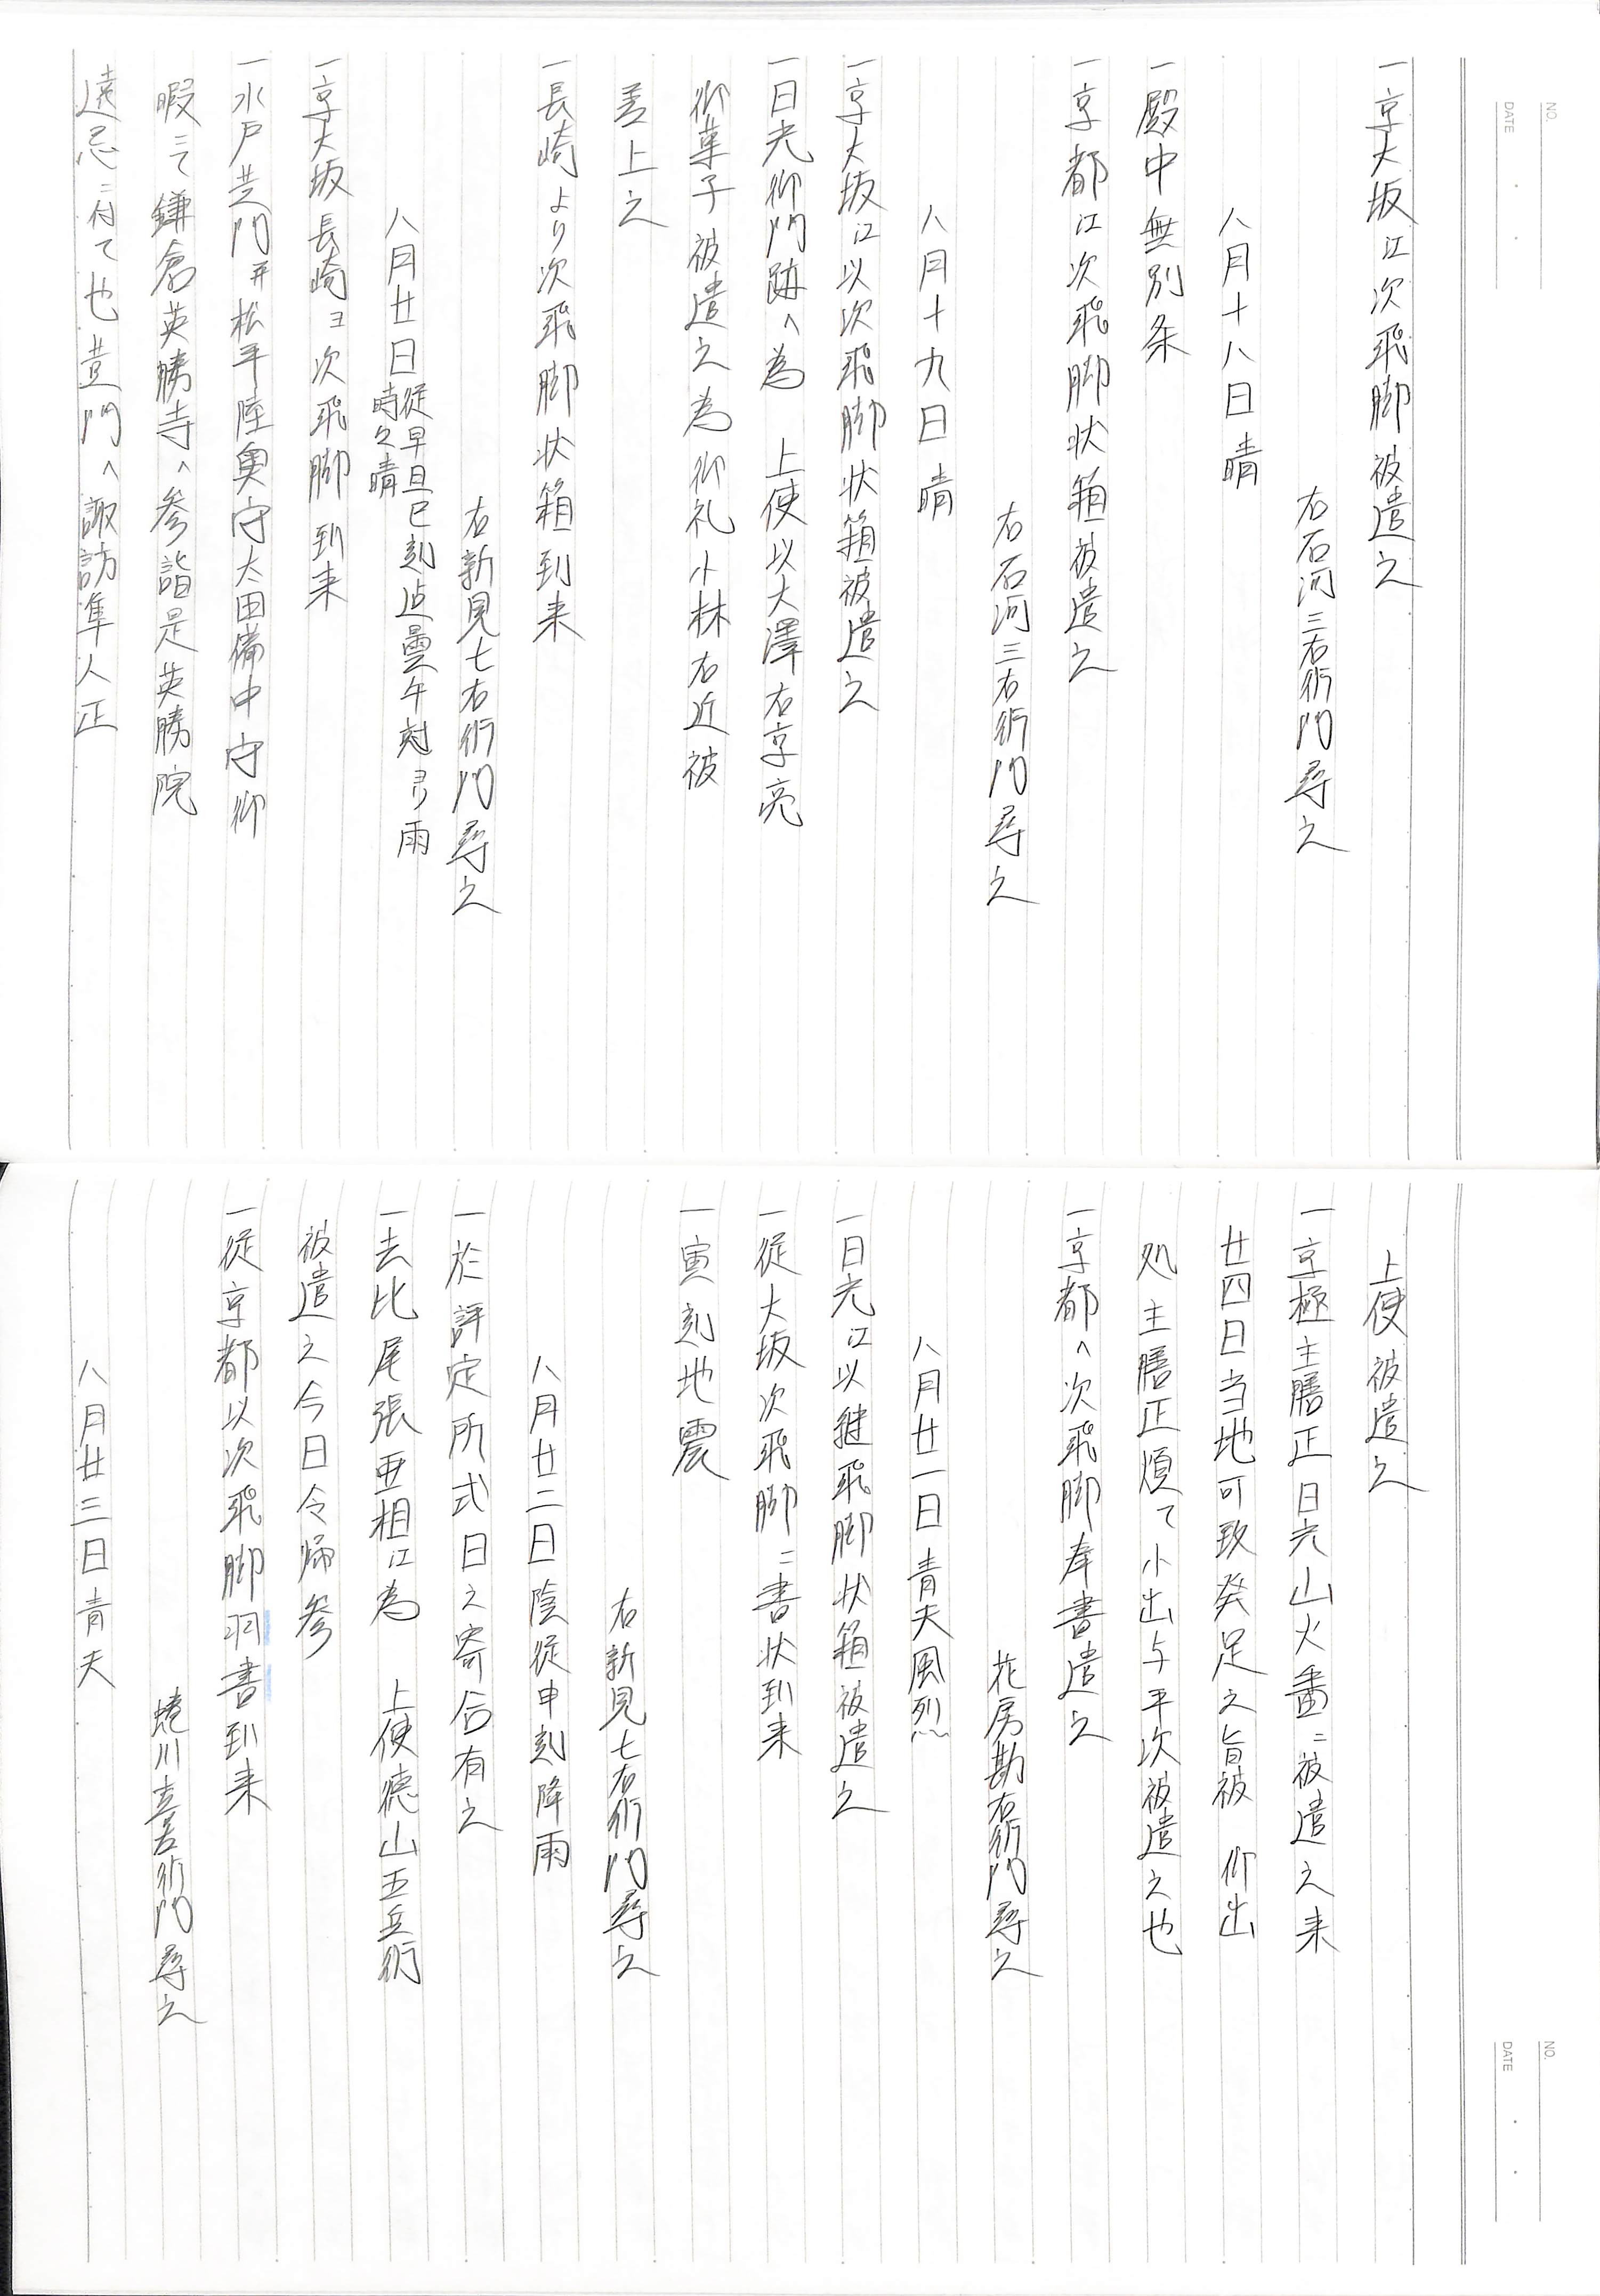 NO.
DATE
一京大坂江次飛脚被遣之
右石河三右衛門尋之
八月十八日晴
一殿中無別条
一京都江次飛脚状箱被遣之
右石河三右衛門尋之
八月十九日晴
一京大坂江以次飛脚状箱被遣之
一日光御門跡へ為 上使以大澤右京亮
御菓子被遣之為御礼小林右近被
差上之
一長崎より次飛脚状箱到来
右新見七右衛門尋之
八月廿日従早旦巳刻迠曇午刻ヨリ雨
時々晴
一京大坂長崎ヨ次飛脚到来
一水戸黄門并松平陸奥守太田備中守御
暇ニて鎌倉英勝寺へ参詣是英勝院
遠忌ニ付て也黄門へ諏訪隼人正
NO.
DATE
上使被遣之
一京極主膳正日光山火番ニ被遣之来
廿四日当地可致発足之旨被 仰出
処主膳正煩て小出与平次被遣之也
一京都へ次飛脚奉書遣之
花房勘右衛門尋之
八月廿一日青天風烈
一日光江以継飛脚状箱被遣之
一従大坂次飛脚ニ書状到来
一寅刻地震
右新見七右衛門尋之
八月廿二日陰従申刻降雨
一於評定所式日之寄合有之
一去比尾張亜相江為 上使徳山五兵衛
被遣之今日令帰参
一従京都以次飛脚羽書到来
蜷川喜右衛門尋之
八月廿三日青天